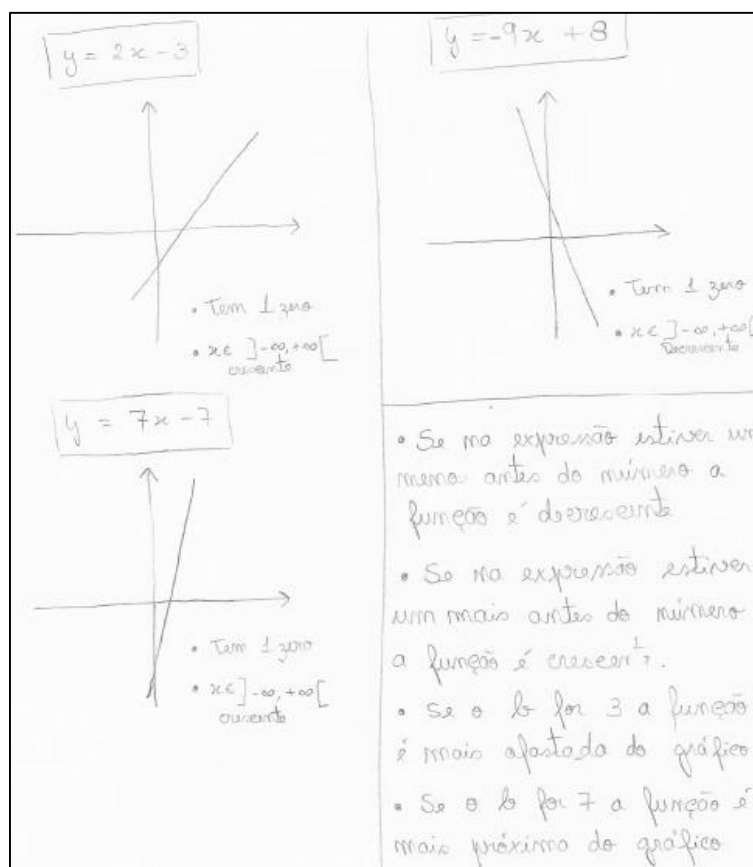 y = 2x - 3
• Tem 1 zero
• x ∈ ]-∞, +∞[
crescente
y = -9x + 8
• Tem 1 zero
• x ∈ ]-∞, +∞[
Decrescente
y = 7x - 7
• Tem 1 zero
• x ∈ ]-∞, +∞[
crescente
• Se na expressão estiver um
menos antes do número a
função é decrescente
• Se na expressão estiver
um mais antes do número
a função é crescente.
• Se o b for 3 a função
é mais afastada do gráfico
• Se o b for 7 a função é
mais próxima do gráfico